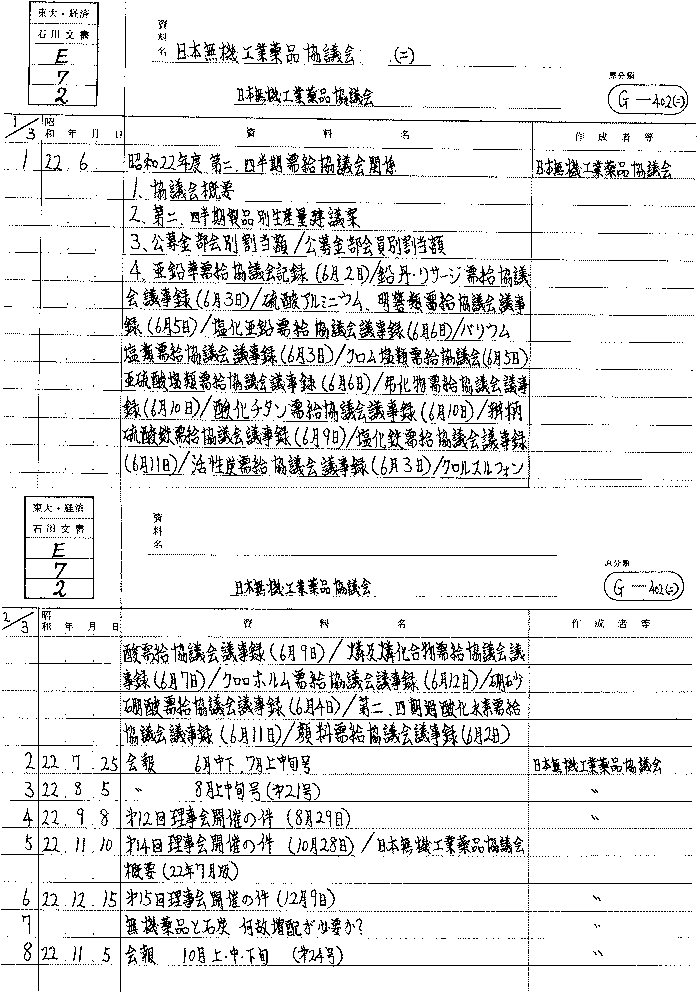 東大・経済
石川文書
E
7
2
資料名 日本無機工業薬品協議会 (二)
日本無機工業薬品協議会
原分類
G-402(二)
1/3 昭和 年 月 日 資料名 作成者等
1 22 6 昭和22年度 第二.四半期需給協議会関係 日本無機工業薬品協議会
1、協議会概要
2、第二.四半期製品別生産量建議案
3、公募金部会別割当額/公募金部会員別割当額
4、亜鉛華需給協議会記録(6月2日)/鉛丹・リサージ需給協議
会議事録(6月3日)/硫酸アルミニウム、明礬類需給協議会議事
録(6月5日)/塩化亜鉛需給協議会議事録(6月6日)/バリウム
塩類需給協議会議事録(6月3日)/クロム塩類需給協議会(6月5日)
亜硫酸塩類需給協議会議事録(6月6日)/弗化物需給協議会議事
録(6月10日)/酸化チタン需給協議会議事録(6月10日)/弁柄
硫酸鉄需給協議会議事録(6月9日)/塩化鉄需給協議会議事録
(6月11日)/活性炭需給協議会議事録(6月3日)/クロルスルフォン
東大・経済
石川文書
E
7
2
資料名
日本無機工業薬品協議会
原分類
G-402(二)
2/3 昭和 年 月 日 資料名 作成者等
酸需給協議会議事録(6月9日)/燐及燐化合物需給協議会議
事録(6月7日)/クロロホルム需給協議会議事録(6月12日)/硼砂
硼酸需給協議会議事録(6月4日)/第二.四期過酸化水素需給
協議会議事録(6月11日)/顔料需給協議会議事録(6月2日)
2 22 7 25 会報 6月中下 7月上中旬号 日本無機工業薬品協議会
3 22 8 5 〃 8月上中旬号(第21号) 〃
4 22 9 8 第12回理事会開催の件 (8月29日) 〃
5 22 11 10 第14回理事会開催の件 (10月28日) /日本無機工業薬品協議会
概要(22年7月版)
6 22 12 15 第15回理事会開催の件(12月9日) 〃
7 無機薬品と石炭 何故増配が必要か? 〃
8 22 11 5 会報 10月上・中・下旬 (第24号) 〃